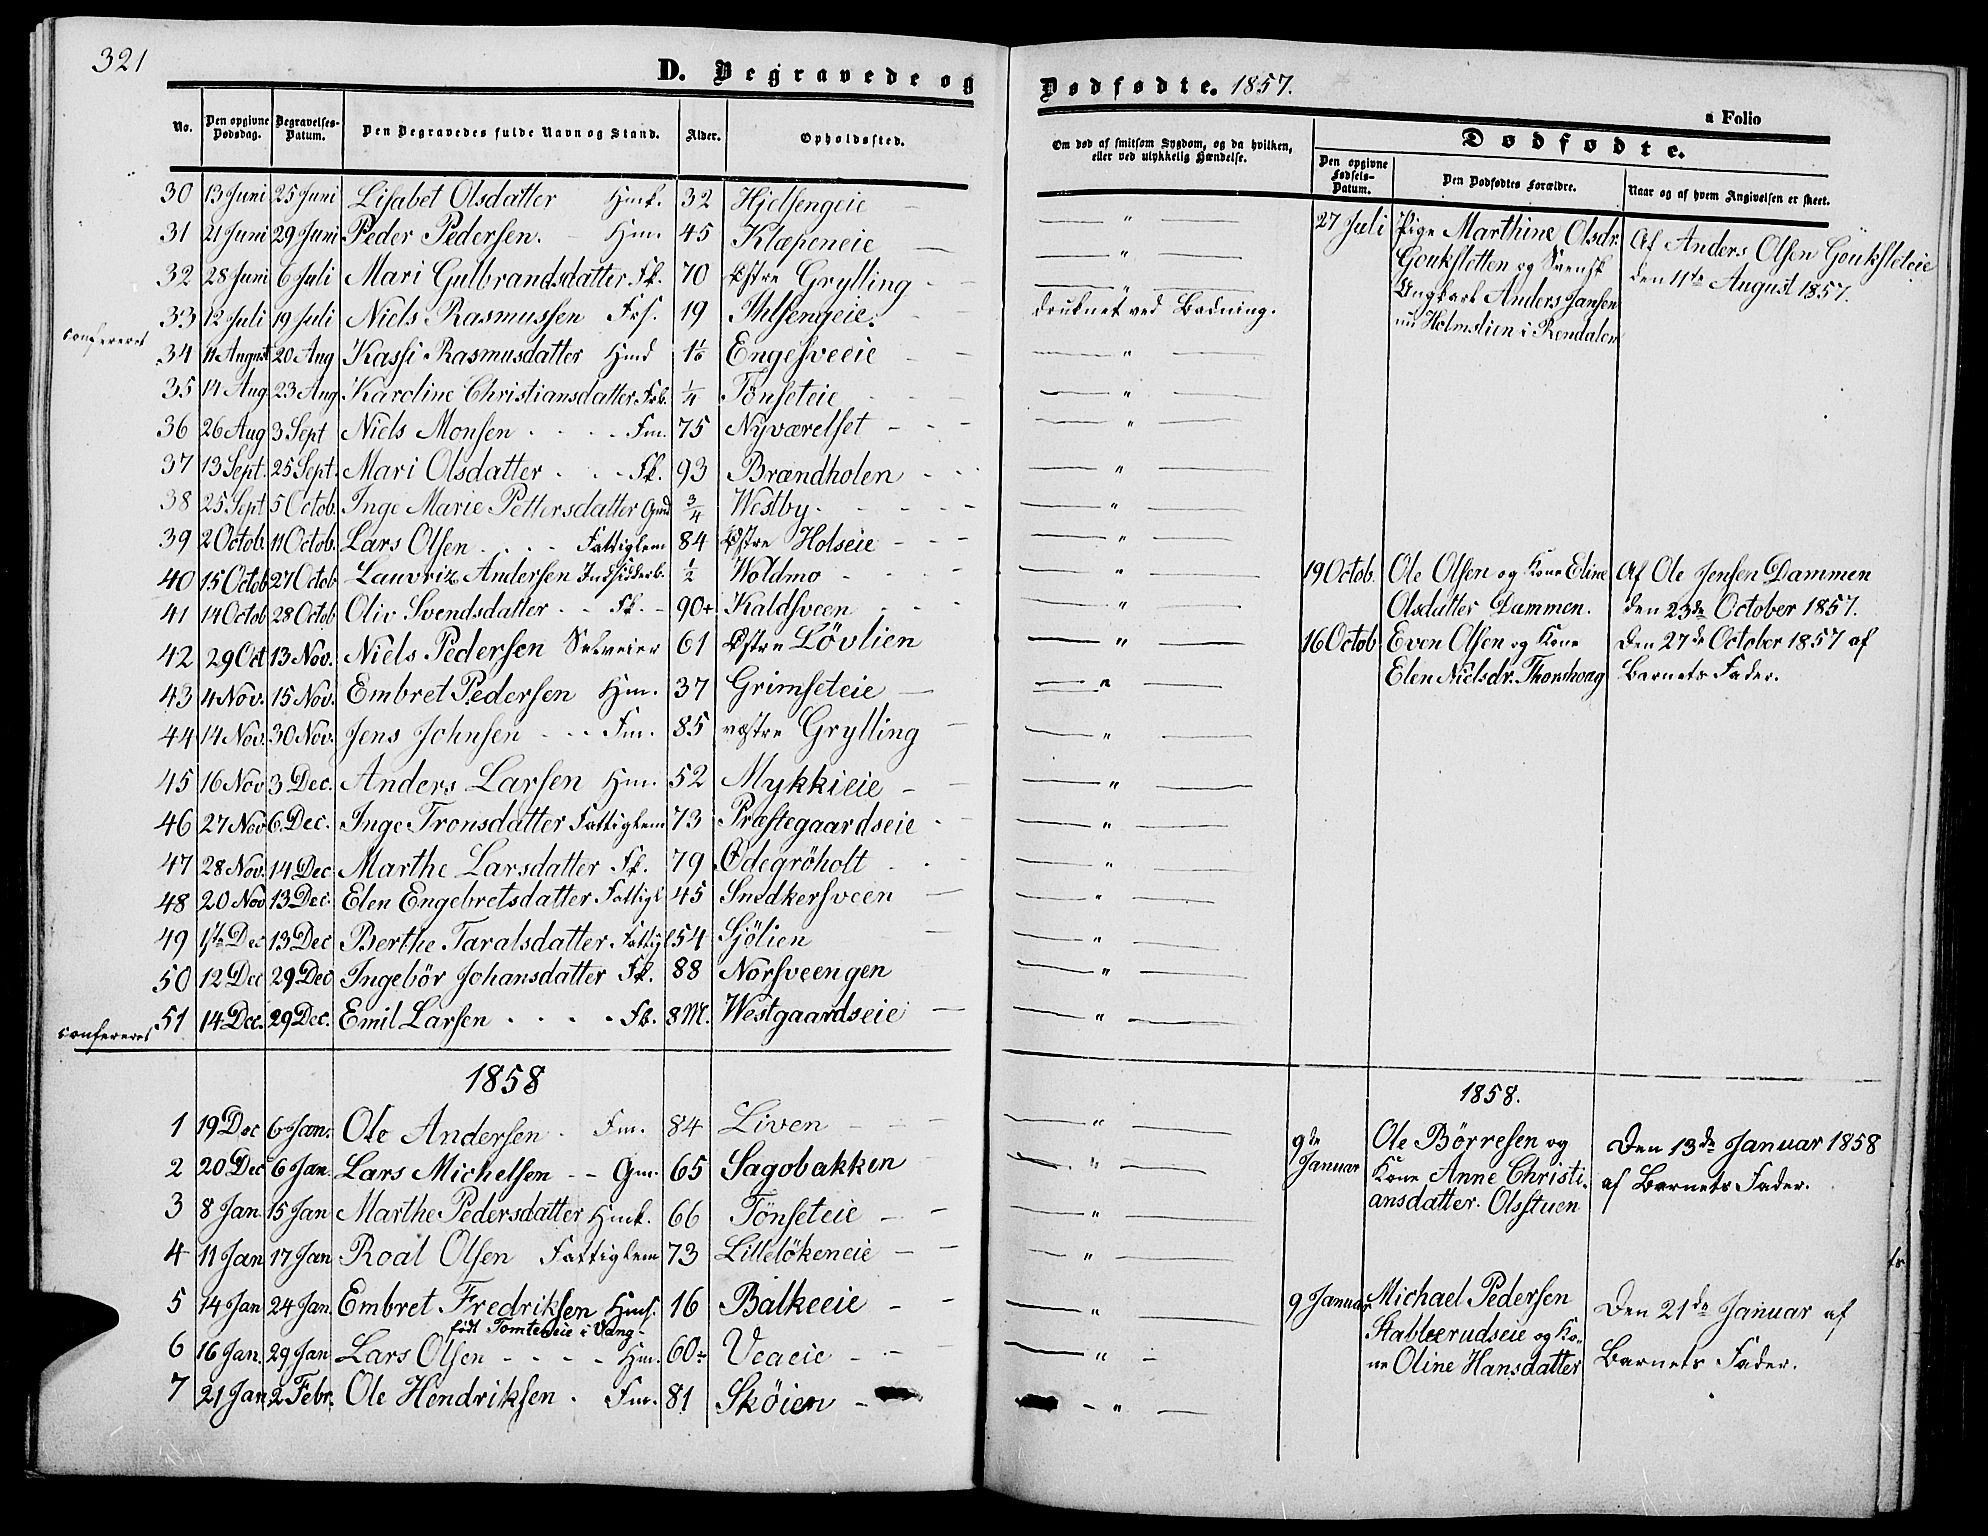 321
D. Begravede og
No. Den opgivne Dødsdag. Begravelses-Datum. Den Begravedes fulde Navn og Stand. Alder. Opholdssted.
30 13 Juni 25 Juni Lisabet Olsdatter Hmk. 32 Hjelsengeie
31 21 Juni 29 Juni Peder Pedersen. Hm. 45 Klæpeneie
32 28 Juni 6 Juli Mari Gulbrandsdatter Fk. 70 Østre Grylling
33 12 Juli 19 Juli Niels Rasmussen Frs. 19 Ihlsengeie.
confereret
34 11 August 20 Aug Kassi Rasmusdatter Hmd Engesveeie
35 14 Aug 23 Aug Karoline Christiansdatter Frb. 1/4 Tönseteie
36 26 Aug 3 Sept Niels Monsen Fm. 75 Nyværelset
37 13 Sept. 25 Sept. Mari Olsdatter Fk. 93 Brændholen
38 25 Sept 5 Octob. Inge Marie Pettersdatter Gmd 3/4 Westby
39 2 Octob. 11 Octob. Lars Olsen Fattiglem 84 Østre Holseie
40 15 Octob 27 Octob Lauvriz Andersen Indsidderb. 1/2 Woldmo
41 14 Octob 28 Octob Oliv Svendsdatter Fk. 90+ Kaldsveen
42 29 Oct 13 Nov. Niels Pedersen Selveier 61 Østre Lövlien
43 4 Nov. 15 Nov. Embret Pedersen Hm. 37 Grimseteie
44 14 Nov. 30 Nov. Jens Johnsen Fm. 85 vestre Grylling
45 16 Nov 3 Dec. Anders Larsen Hm. 52 Mykkieie
46 27 Nov 6 Dec. Inge Tronsdatter Fattiglem 73 Præstegaardseie
47 28 Nov. 14 Dec Marthe Larsdatter Fk. 79 Ødegröholt
48 20 Nov 13 Dec. Elen Engebretsdatter Fattigl 45 Snedkersveen
49 1ste Dec 13 Dec Berthe Taralsdatter Fattigl 54 Sjölien
50 12 Dec 29 Dec Ingebör Johansdatter Fk. 88 Norsveengen
51 14 Dec. 29 Dec. Emil Larsen Fb. 8 M. Westgaardseie
confereret
1858
1 19 Dec 6 Jan. Ole Andersen Fm. 84 Liven
2 20 Dec 6 Jan. Lars Michelsen Gm. 65 Sagobakken
3 8 Jan. 15 Jan Marthe Pedersdatter Hmk. 66 Tönseteie
4 11 Jan 17 Jan Roal Olsen Fattiglem 73 Lillelökeneie
5 14 Jan 24 Jan. Embret Fredriksen Hms. 16 Balkeeie
födt Tomteneie i Vang
6 16 Jan. 29 Jan Lars Olsen Hm. 60 Veaeie
7 21 Jan 2 Febr. Ole Hendriksen Fm. 81 Sköien
Dødfødte. 1857.
a Folio
Om død af smitsom Sygdom, og da hvilken, eller ved ulykkelig Hændelse.
Dødfødte.
Den opgivne Fødsels-Datum. Den Dødfødtes Forældre. Naar og af hvem Angivelsen er skeet.
druknet ved Badning.
27 Juli Pige Marthine Olsdr. Af Anders Olsen Göuksleteie
Gouksletten og Svensk den 11te August 1857.
Ungkarl Anders Jansen
nu Holmstien i Rendalen
19 Octob. Ole Olsen og Kone Eline Af Ole Jensen Dammen
Olsdatter Dammen. den 23de October 1857.
16 Octob Even Olsen og Kone Den 27de October 1857 af
Elen Nielsdr. Thonshoug Barnets Fader.
1858.
9de Januar Ole Börresen og Den 13de Januar 1858
Kone Anne Christi- af Barnets Fader.
ansdatter Olsstuen
9 Januar Michael Pedersen Den 21de Januar af
Stableerudseie og Ko- Barnets Fader.
ne Oline Hansdatter